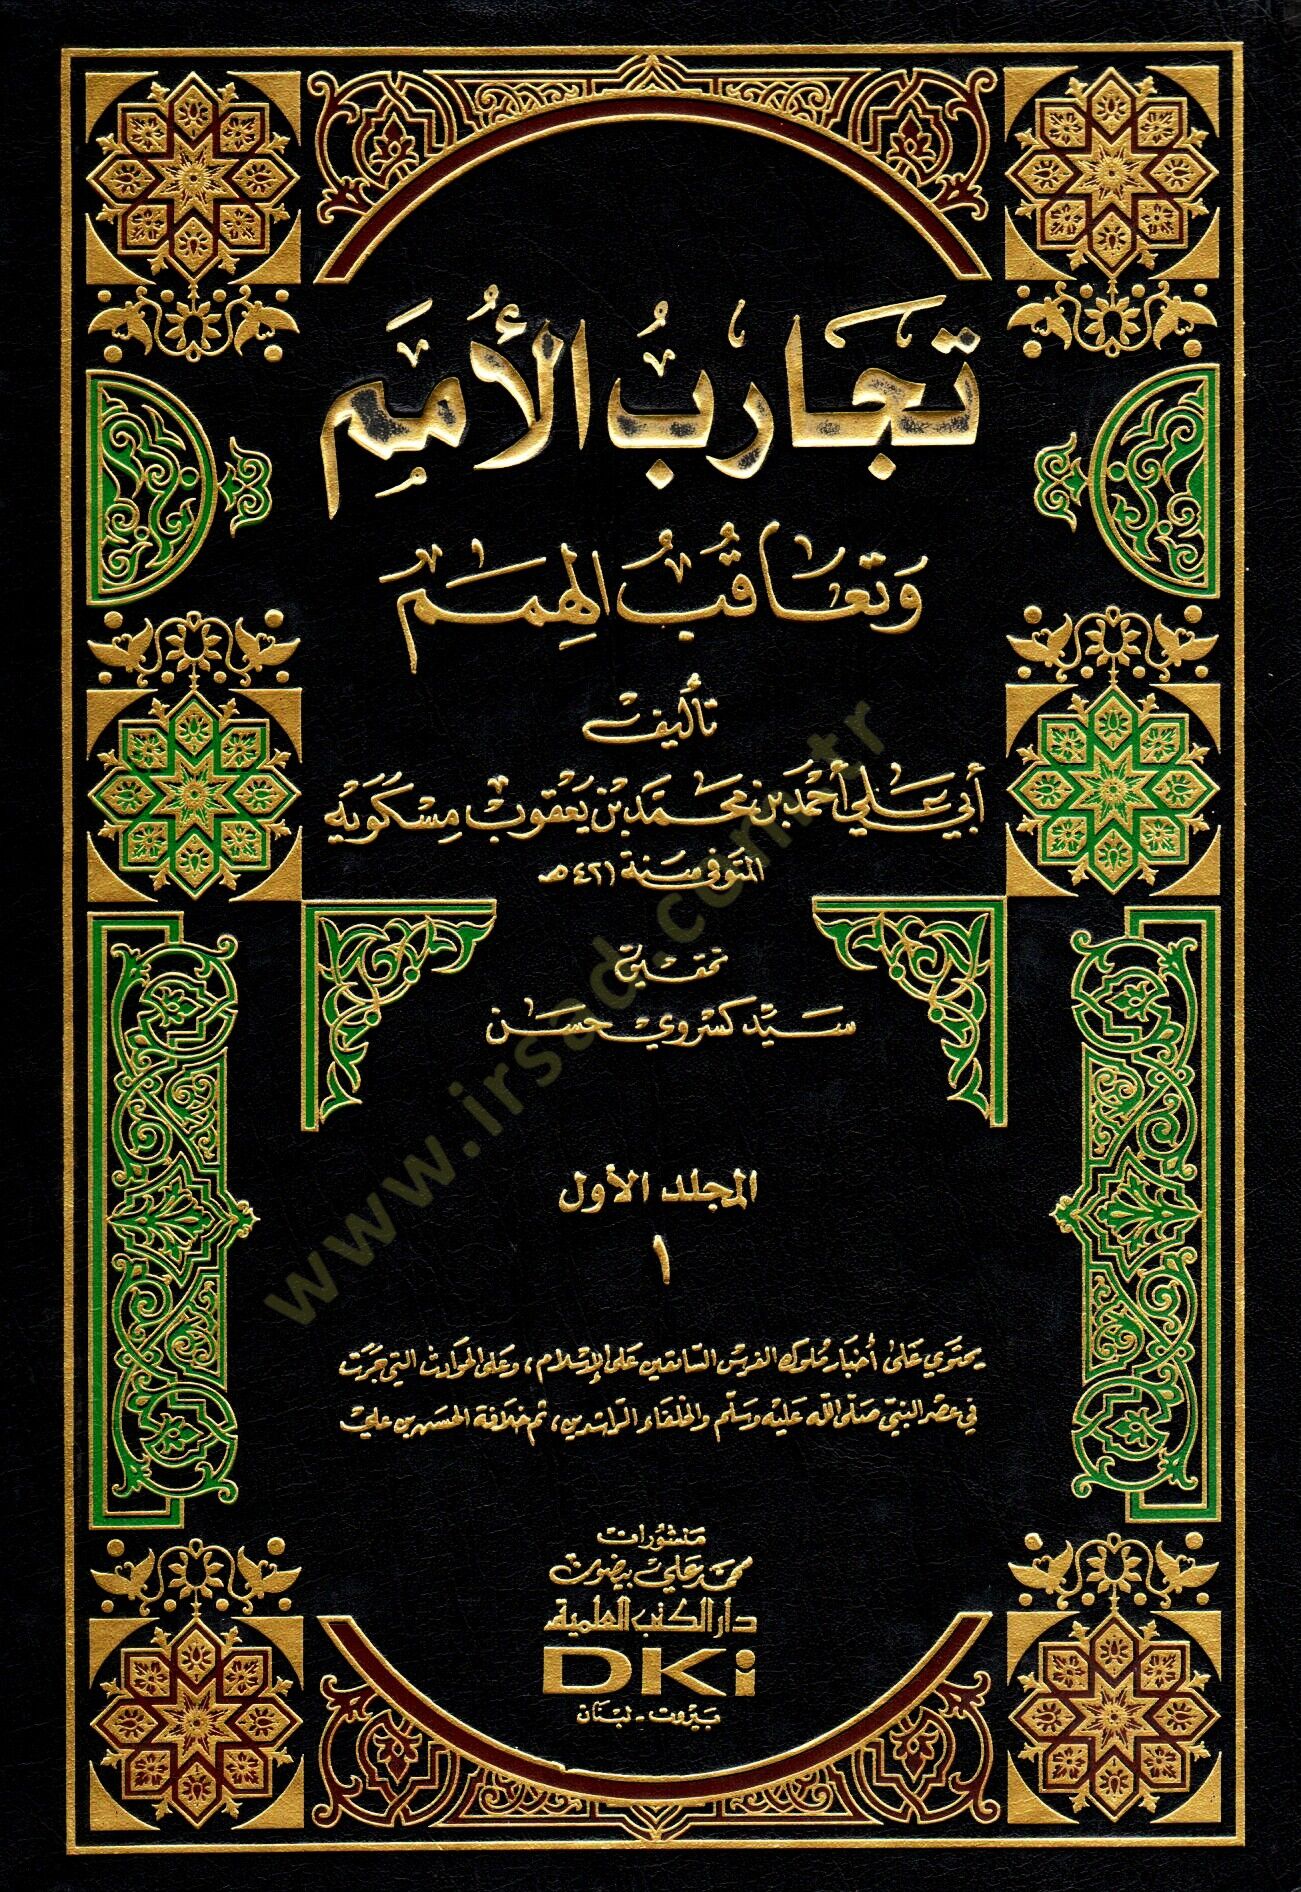 تجَاربُ الأُمَمِ
وَتعَاقبُ الهِمَم
تأليف
أبي عَلي أحْمَد بن محَمَّد بن يَعقوب مِسْكَوَيْه
المتوفى سنة ٤٢١ هـ
تحقيق
سَيّد كسْروي حسَن
المجلد الأول
١
يحتوي على أخبار مُلوك الفرس السّابقين على الإسْلام، وعلى الحوادث التي جَرَت
في عصْر النبيّ صَلى الله عَليْه وسَلم والخلفاء الراشدين، ثم خلافة الحسَن بن علي
منشورات
محمد علي بيضون
دار الكتب العلمية
DKi
بيروت - لبنان
www.irsad.com.tr